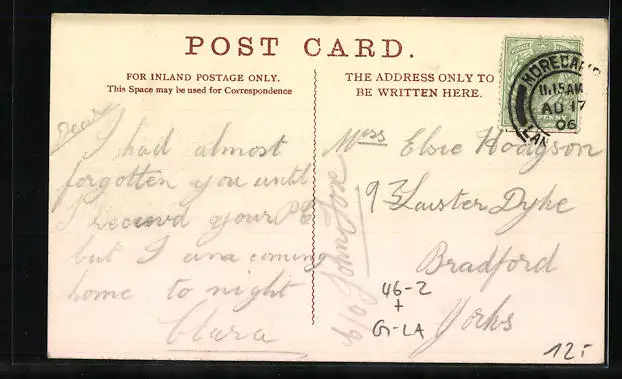 POST CARD.
FOR INLAND POSTAGE ONLY.
This Space may be used for Correspondence
THE ADDRESS ONLY TO
BE WRITTEN HERE.
POSTAGE
PENNY
MORECAMB
11.15AM
AU 17
06
LAN
Dear
I had almost
forgotten you until
I received your PC
but I am coming
home to night
Clara
Miss Elsie Hodgson
93 Dyke
Bradford
Yorks
c/o John
46-2
+
G-LA
12,-